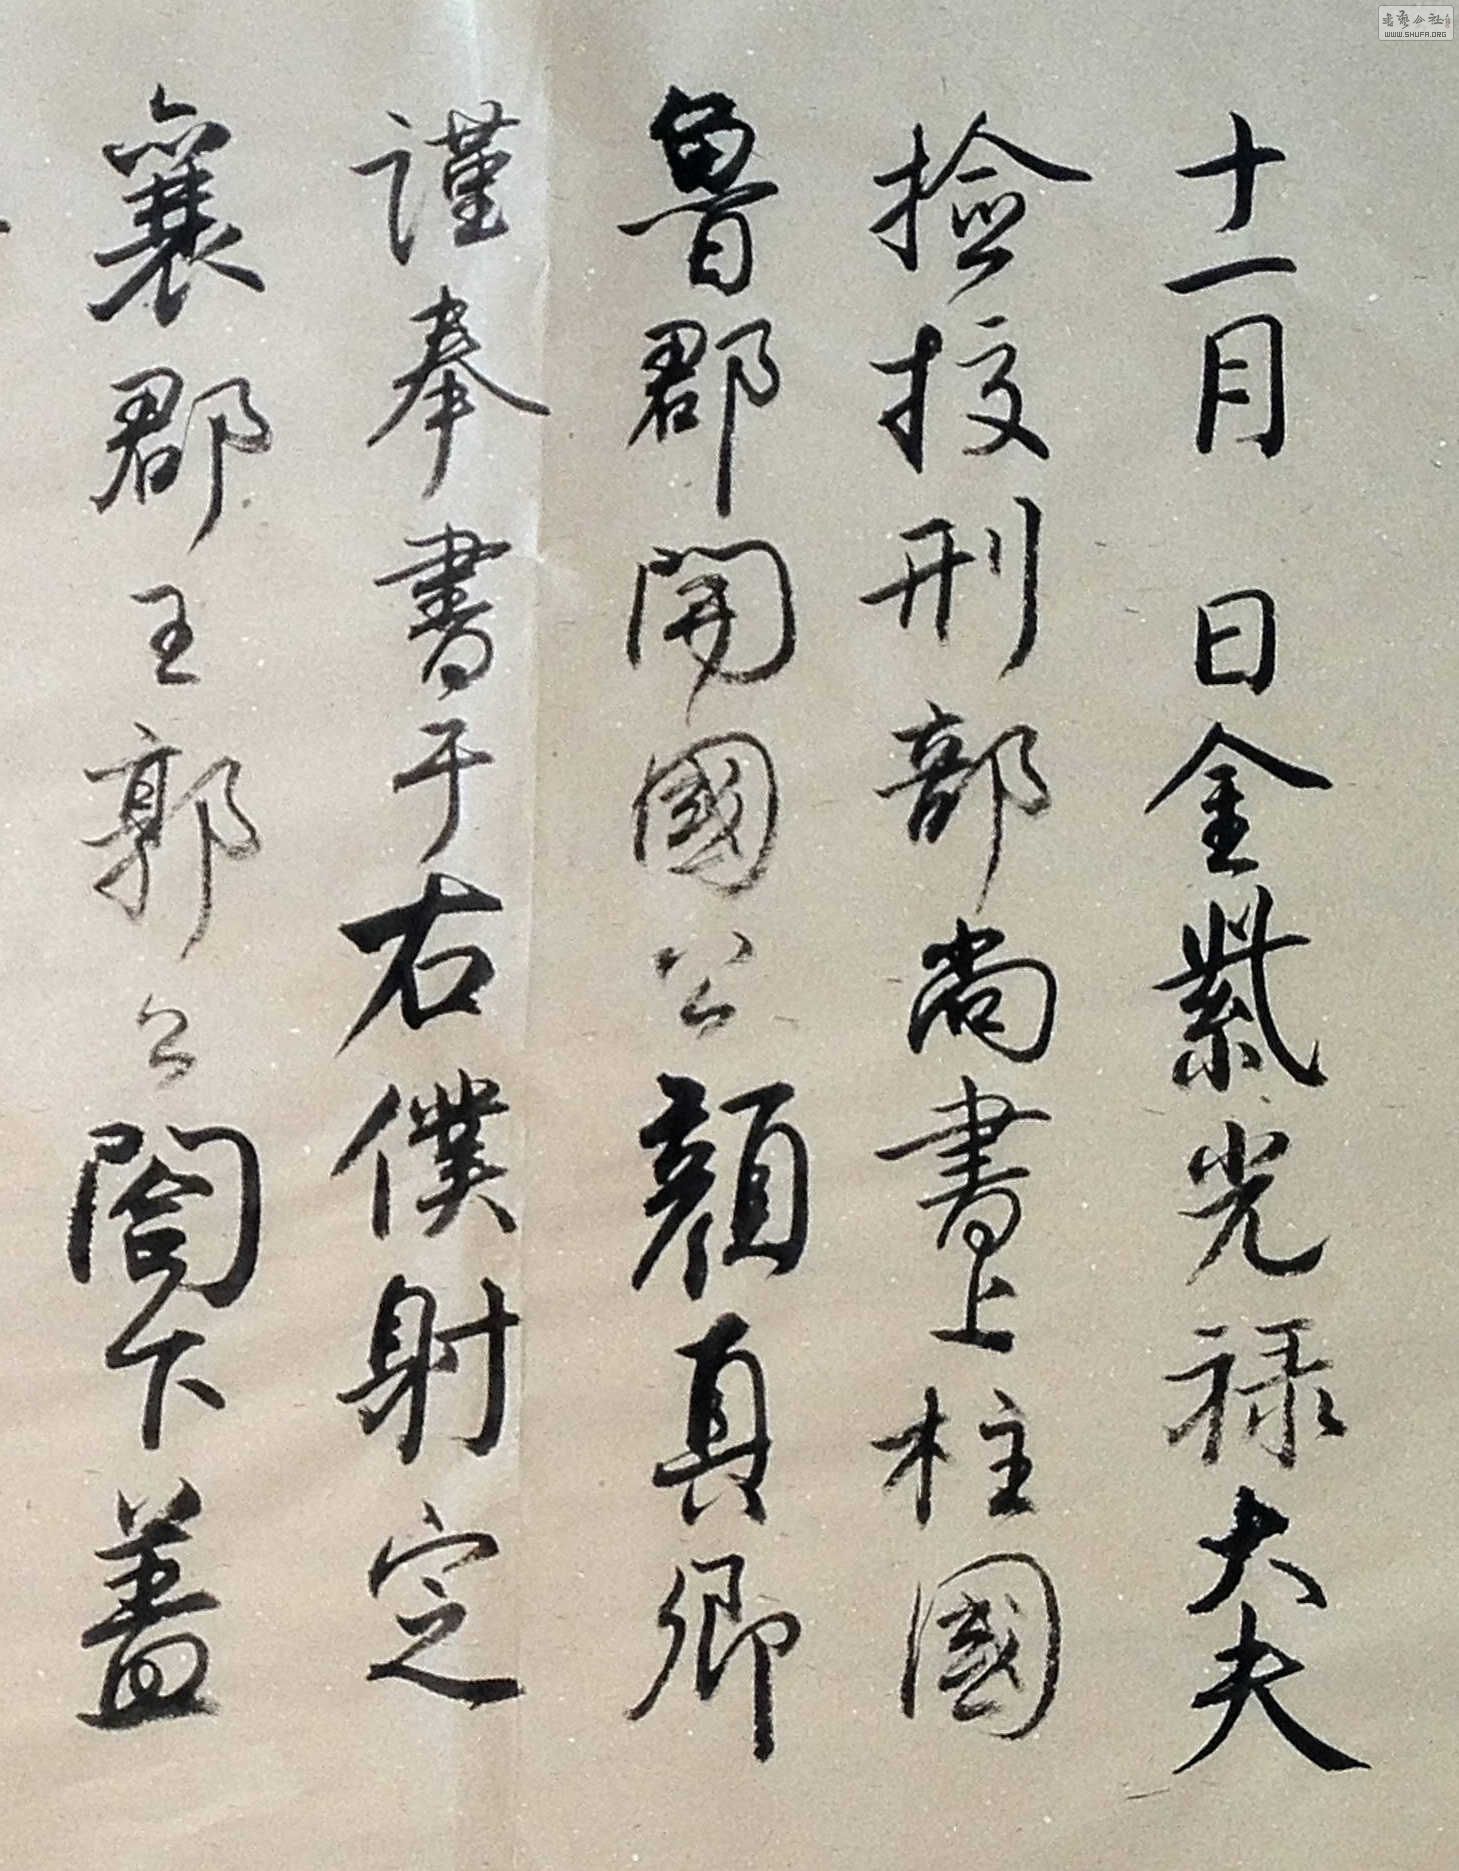 十一月 日金紫光禄大夫
捡挍刑部尚書上柱國
魯郡開國公顏真卿
謹奉書于右僕射定
襄郡王郭公閤下蓋
書艺公社
WWW.SHUFA.ORG